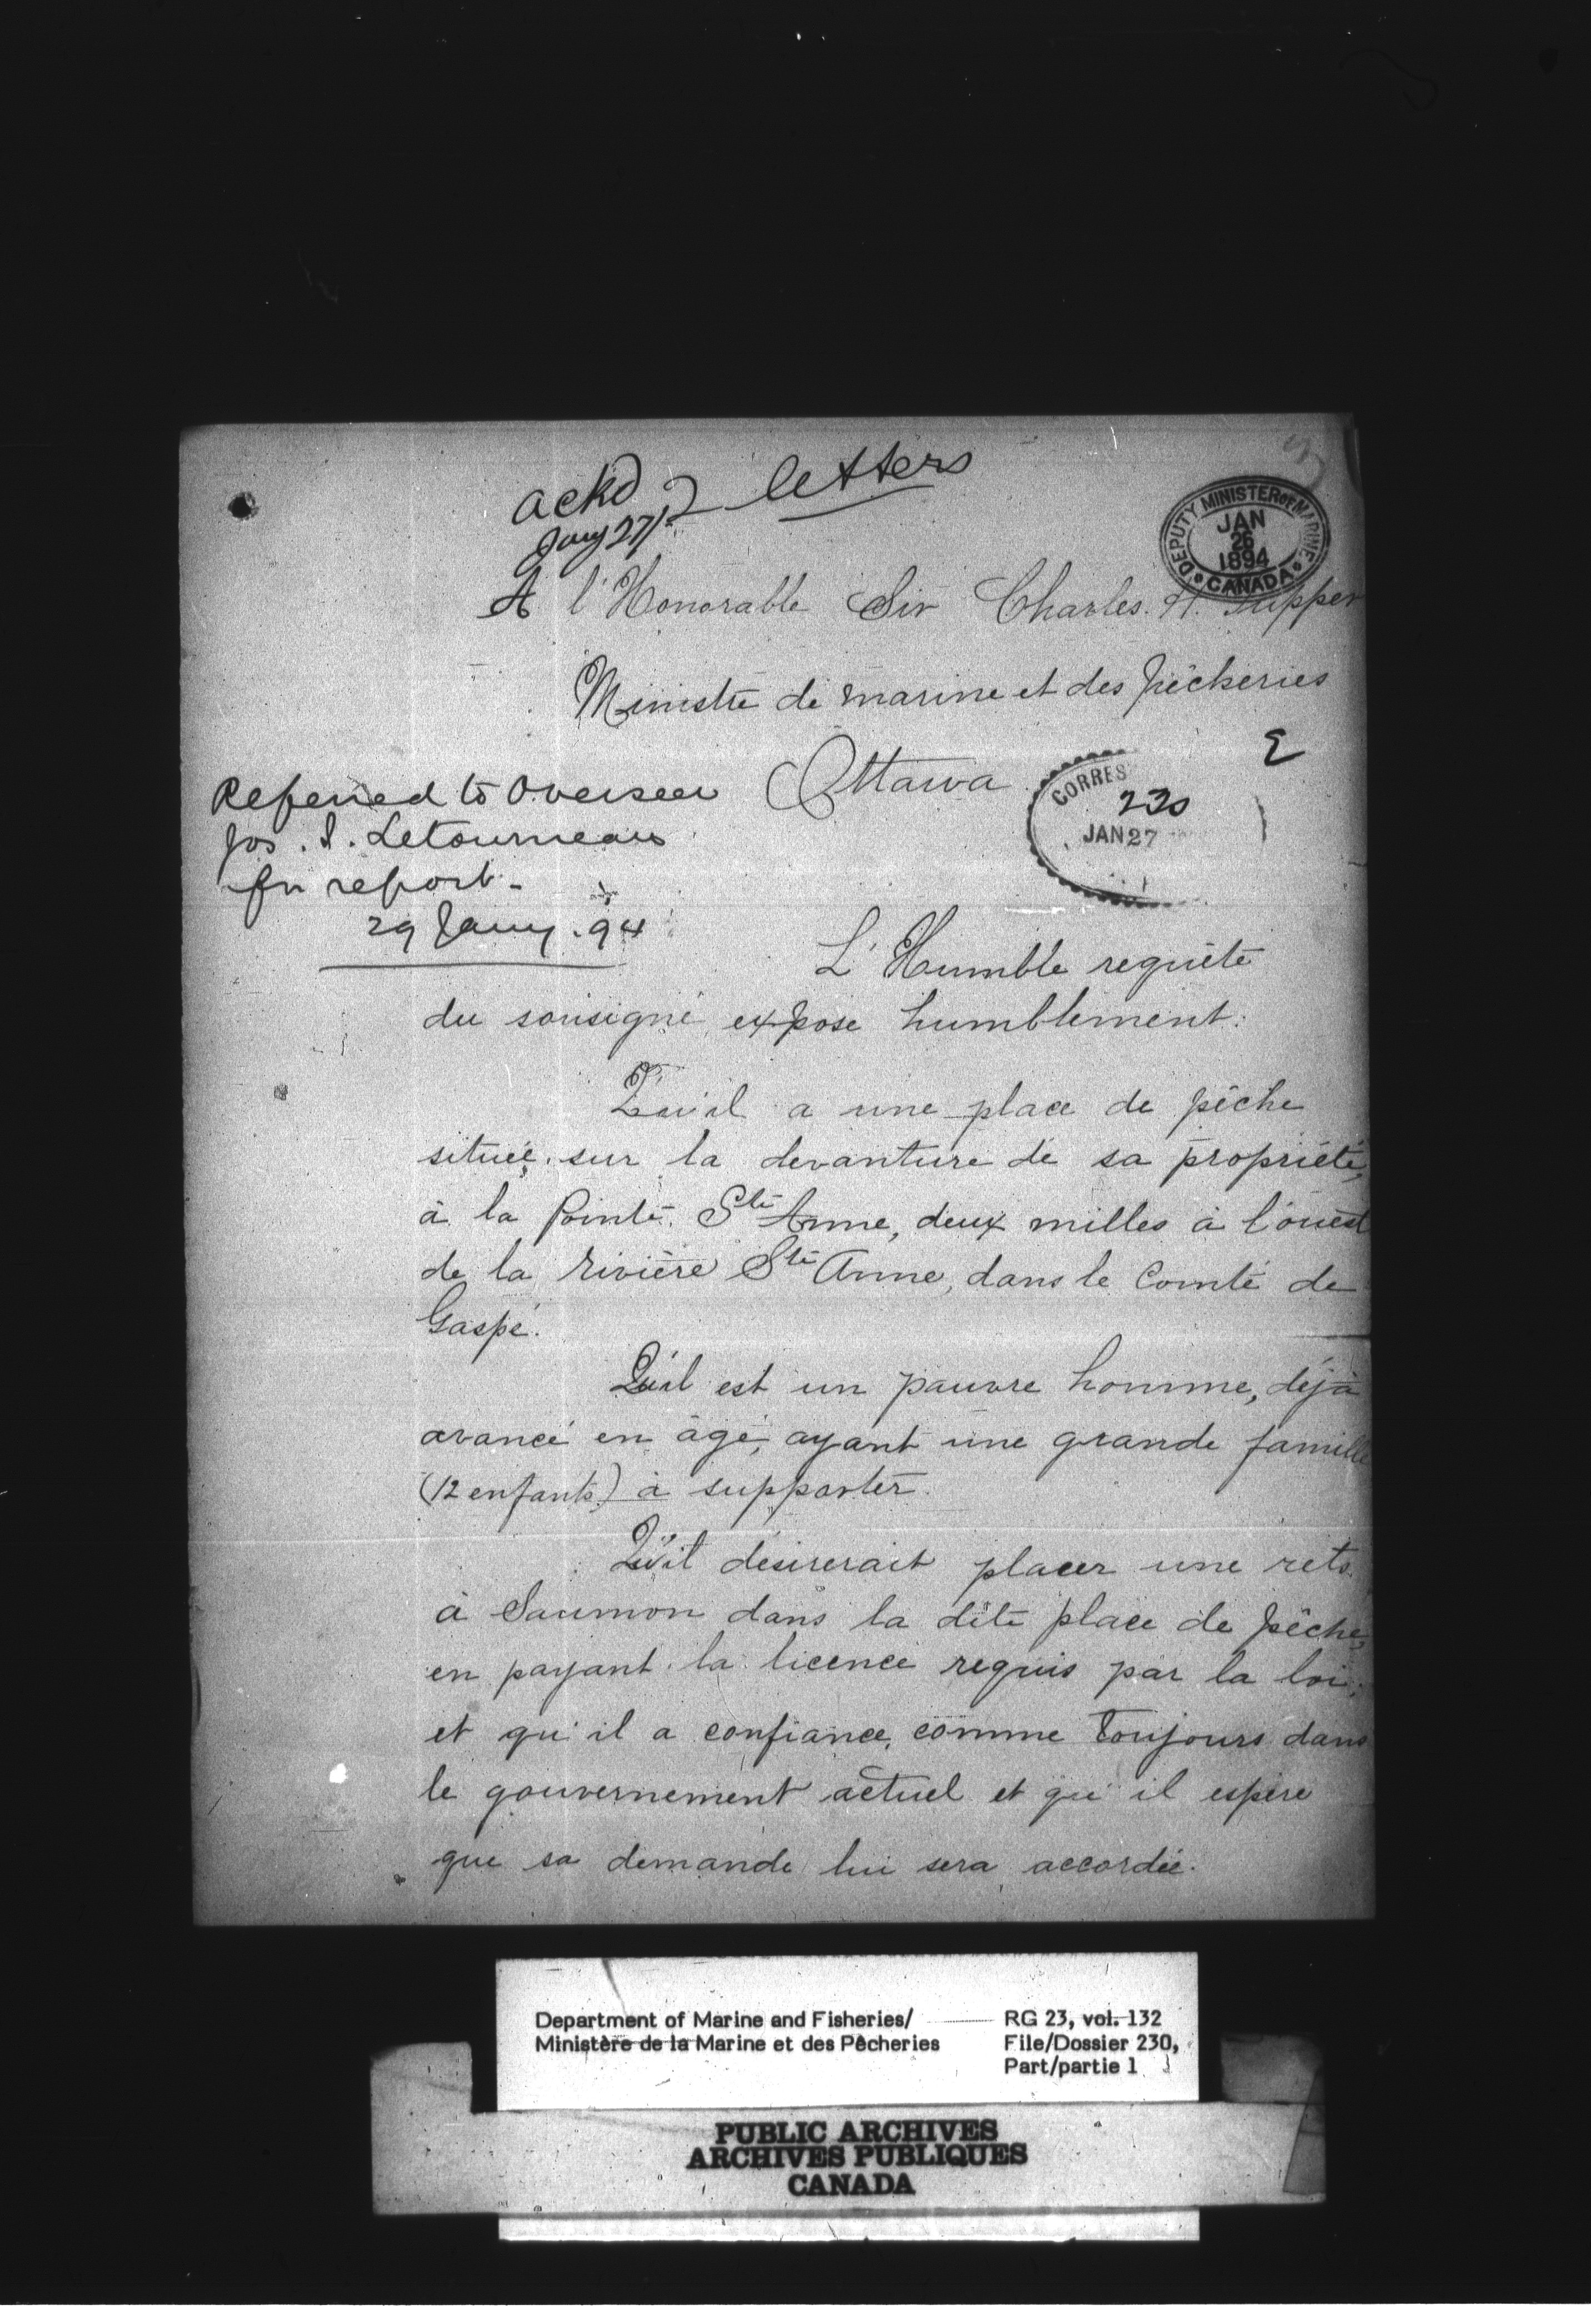 ackd 2 letters
Jany 27/
DEPUTY MINISTER OF MARINE
JAN
26
1894
CANADA
A l'Honorable Sir Charles H. Tupper
Ministre de marine et des Pêcheries
Ottawa
E
CORRES
230
JAN 27
Referred to Overseer
Jos. S. Letourneau
for report.
29 Jany. 94
L'Humble requête
du sousigné expose humblement:
Qu'il a une place de pêche
située sur la devanture de sa propriété,
à la Pointe Ste Anne, deux milles à l'ouest
de la rivière Ste Anne, dans le Comté de
Gaspé.
Qu'il est un pauvre homme, déjà
avancé en âge, ayant une grande famille
(12 enfants) à supporter.
Qu'il désirerait placer une rets
à Saumon dans la dite place de pêche,
en payant la licence requis par la loi;
et qu'il a confiance, comme toujours dans
le gouvernement actuel et qu'il espère
que sa demande lui sera accordée.
Department of Marine and Fisheries/ RG 23, vol. 132
Ministère de la Marine et des Pêcheries File/Dossier 230,
Part/partie 1
PUBLIC ARCHIVES
ARCHIVES PUBLIQUES
CANADA